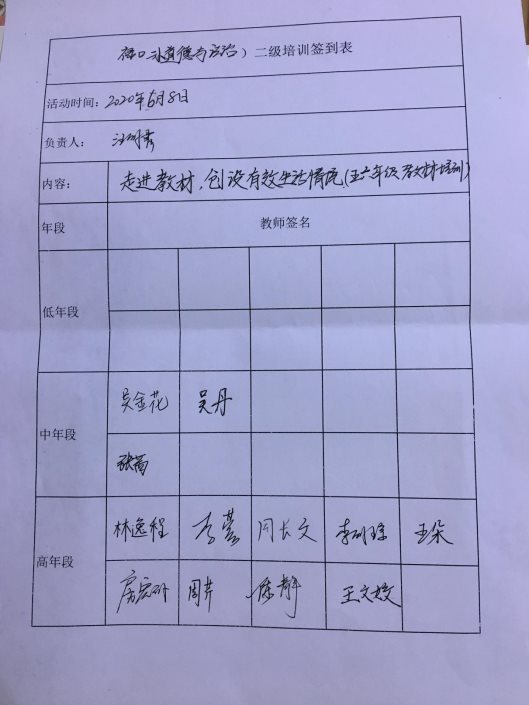 禄口小道德与法治）二级培训签到表
活动时间：2020年6月8日
负责人：
内容：走进教材，创设有效生活情境(五六年级教材培训)
年段 教师签名
低年段
吴金花 吴丹
中年段
张茜
林逸程 李蕾 周长文 李研琼 王朵
高年段
周芹 徐静 王文姣